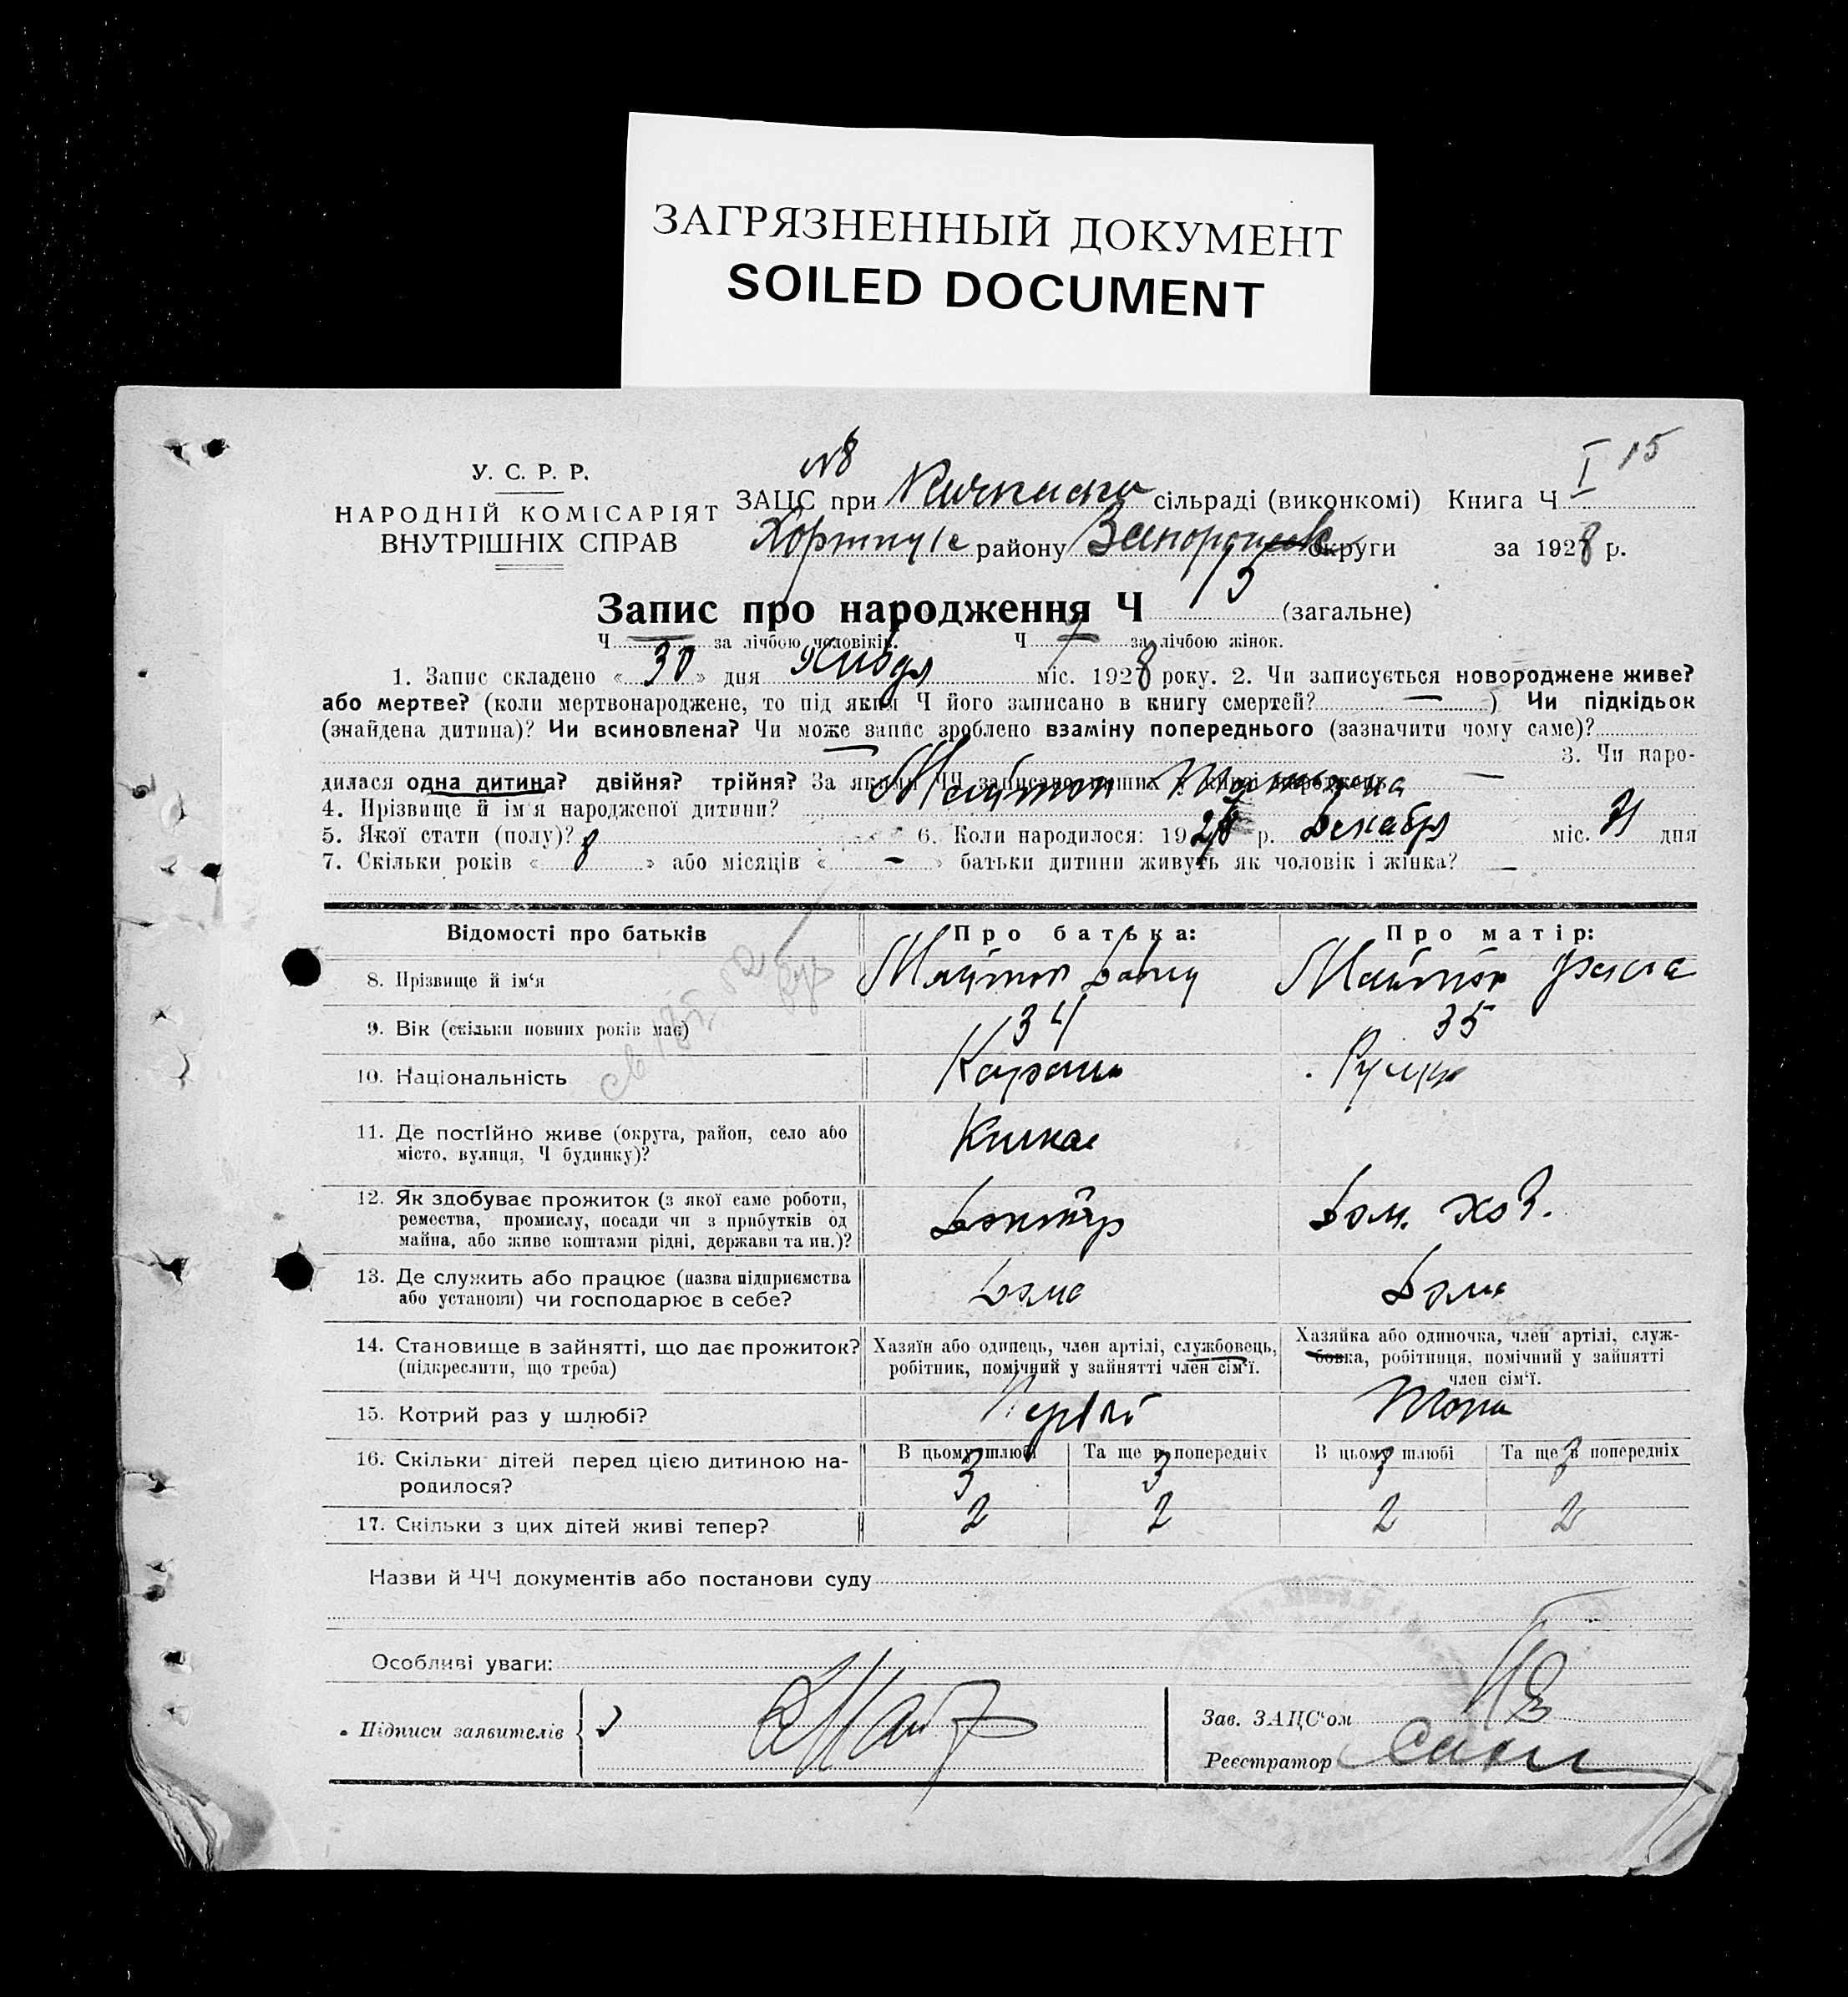 ЗАГРЯЗНЕННЫЙ ДОКУМЕНТ
SOILED DOCUMENT
№8
I 15
У. С. Р. Р.
НАРОДНІЙ КОМІСАРІЯТ
ВНУТРІШНІХ СПРАВ
ЗАЦС при сільраді (виконкомі) Книга Ч
району округи за 1928 р.
Запис про народження Ч (загальне)
Ч — за лічбою чоловіків. Ч за лічбою жінок.
1. Запис складено « 30 » дня Января міс. 1928 року. 2. Чи записується новороджене живе?
або мертве? (коли мертвонароджене, то під яким Ч його записано в книгу смертей? — ) Чи підкідьок
(знайдена дитина)? Чи всиновлена? Чи може запис зроблено взаміну попереднього (зазначити чому саме)?
— 3. Чи наро-
дилася одна дитина? двійня? трійня? За якими ЧЧ записано инших у книзі народжень —
4. Прізвище й ім'я народженої дитини?
5. Якої стати (полу)? 6. Коли народилося: 19 р. Декабря міс. 31 дня
7. Скільки років « 8 » або місяців « - » батьки дитини живуть як чоловік і жінка? —
Відомості про батьків Про батька: Про матір:
8. Прізвище й ім'я
9. Вік (скільки повних років має) 34 35
10. Національність
11. Де постійно живе (округа, район, село або
місто, вулиця, Ч будинку)?
Кичкас
12. Як здобуває прожиток (з якої саме роботи,
ремества, промислу, посади чи з прибутків од
майна, або живе коштами рідні, держави та ин.)?
Дом. хоз.
13. Де служить або працює (назва підприємства
або установи) чи господарює в себе?
Дома Дома
14. Становище в зайнятті, що дає прожиток?
(підкреслити, що треба)
Хазяїн або одинець, член артілі, службовець,
робітник, помічний у зайнятті член сім'ї.
Хазяйка або одиночка, член артілі, служ-
бовка, робітниця, помічний у зайнятті
член сім'ї.
15. Котрий раз у шлюбі?
16. Скільки дітей перед цією дитиною на-
родилося?
В цьому шлюбі Та ще в попередніх В цьому шлюбі Та ще в попередніх
3 3 3 3
17. Скільки з цих дітей живі тепер? 2 2 2 2
Назви й ЧЧ документів або постанови суду
Особливі уваги:
Підписи заявителів
Зав. ЗАЦС'ом
Реєстратор